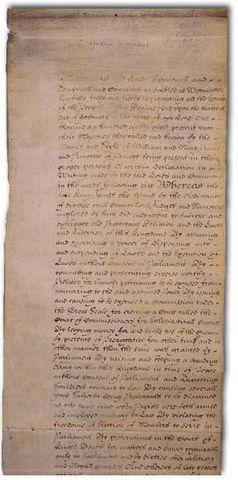 the Lords Spirituall and
Temporall and Commons assembled at Westminster
lawfully fully and freely representing all the Estates
of the People
day of February in the yeare of our Lord One
thousand six hundred eighty eight present unto
their Majesties then called and known by the
Names and Stile of William and Mary Prince
and Princesse of Orange being present in their
proper Persons A certain Declaration in
Writing made by the said Lords and Commons
in the words following viz Whereas the
late King James the Second by the Assistance
of diverse evill Counsellors Judges and Ministers
imployed by him did endeavour to subvert and
extirpate the Protestant Religion and the Lawes
and Liberties of this Kingdome By assuming
and exercising a power of dispensing with
and suspending of Lawes and the Execution of
Lawes without consent of Parliament By
committing and prosecuting diverse worthy
Prelates for humbly petitioning to be excused from
concurring to the said assumed Power By issueing
and causing to be executed a Commission under
the Great Seale for erecting a Court called the
Court of Commissioners for Ecclesiasticall Causes
By levying money for and to the use of the Crowne
by pretence of Prerogative for other time and in
other manner then the same was granted by
Parliament By raising and keeping a standing
Army within this Kingdome in time of Peace
without consent of Parliament and Quartering
Souldiers contrary to Law By causing severall
good Subjects being Protestants to be disarmed
at the same time when Papists were both armed
and employed contrary to Law By violating the
freedome of Election of Members to serve in
Parliament By prosecutions in the Court of
Kings Bench for matters and causes cognizable
only in Parliament and by diverse other arbitrary
and illegall courses And whereas of late yeares